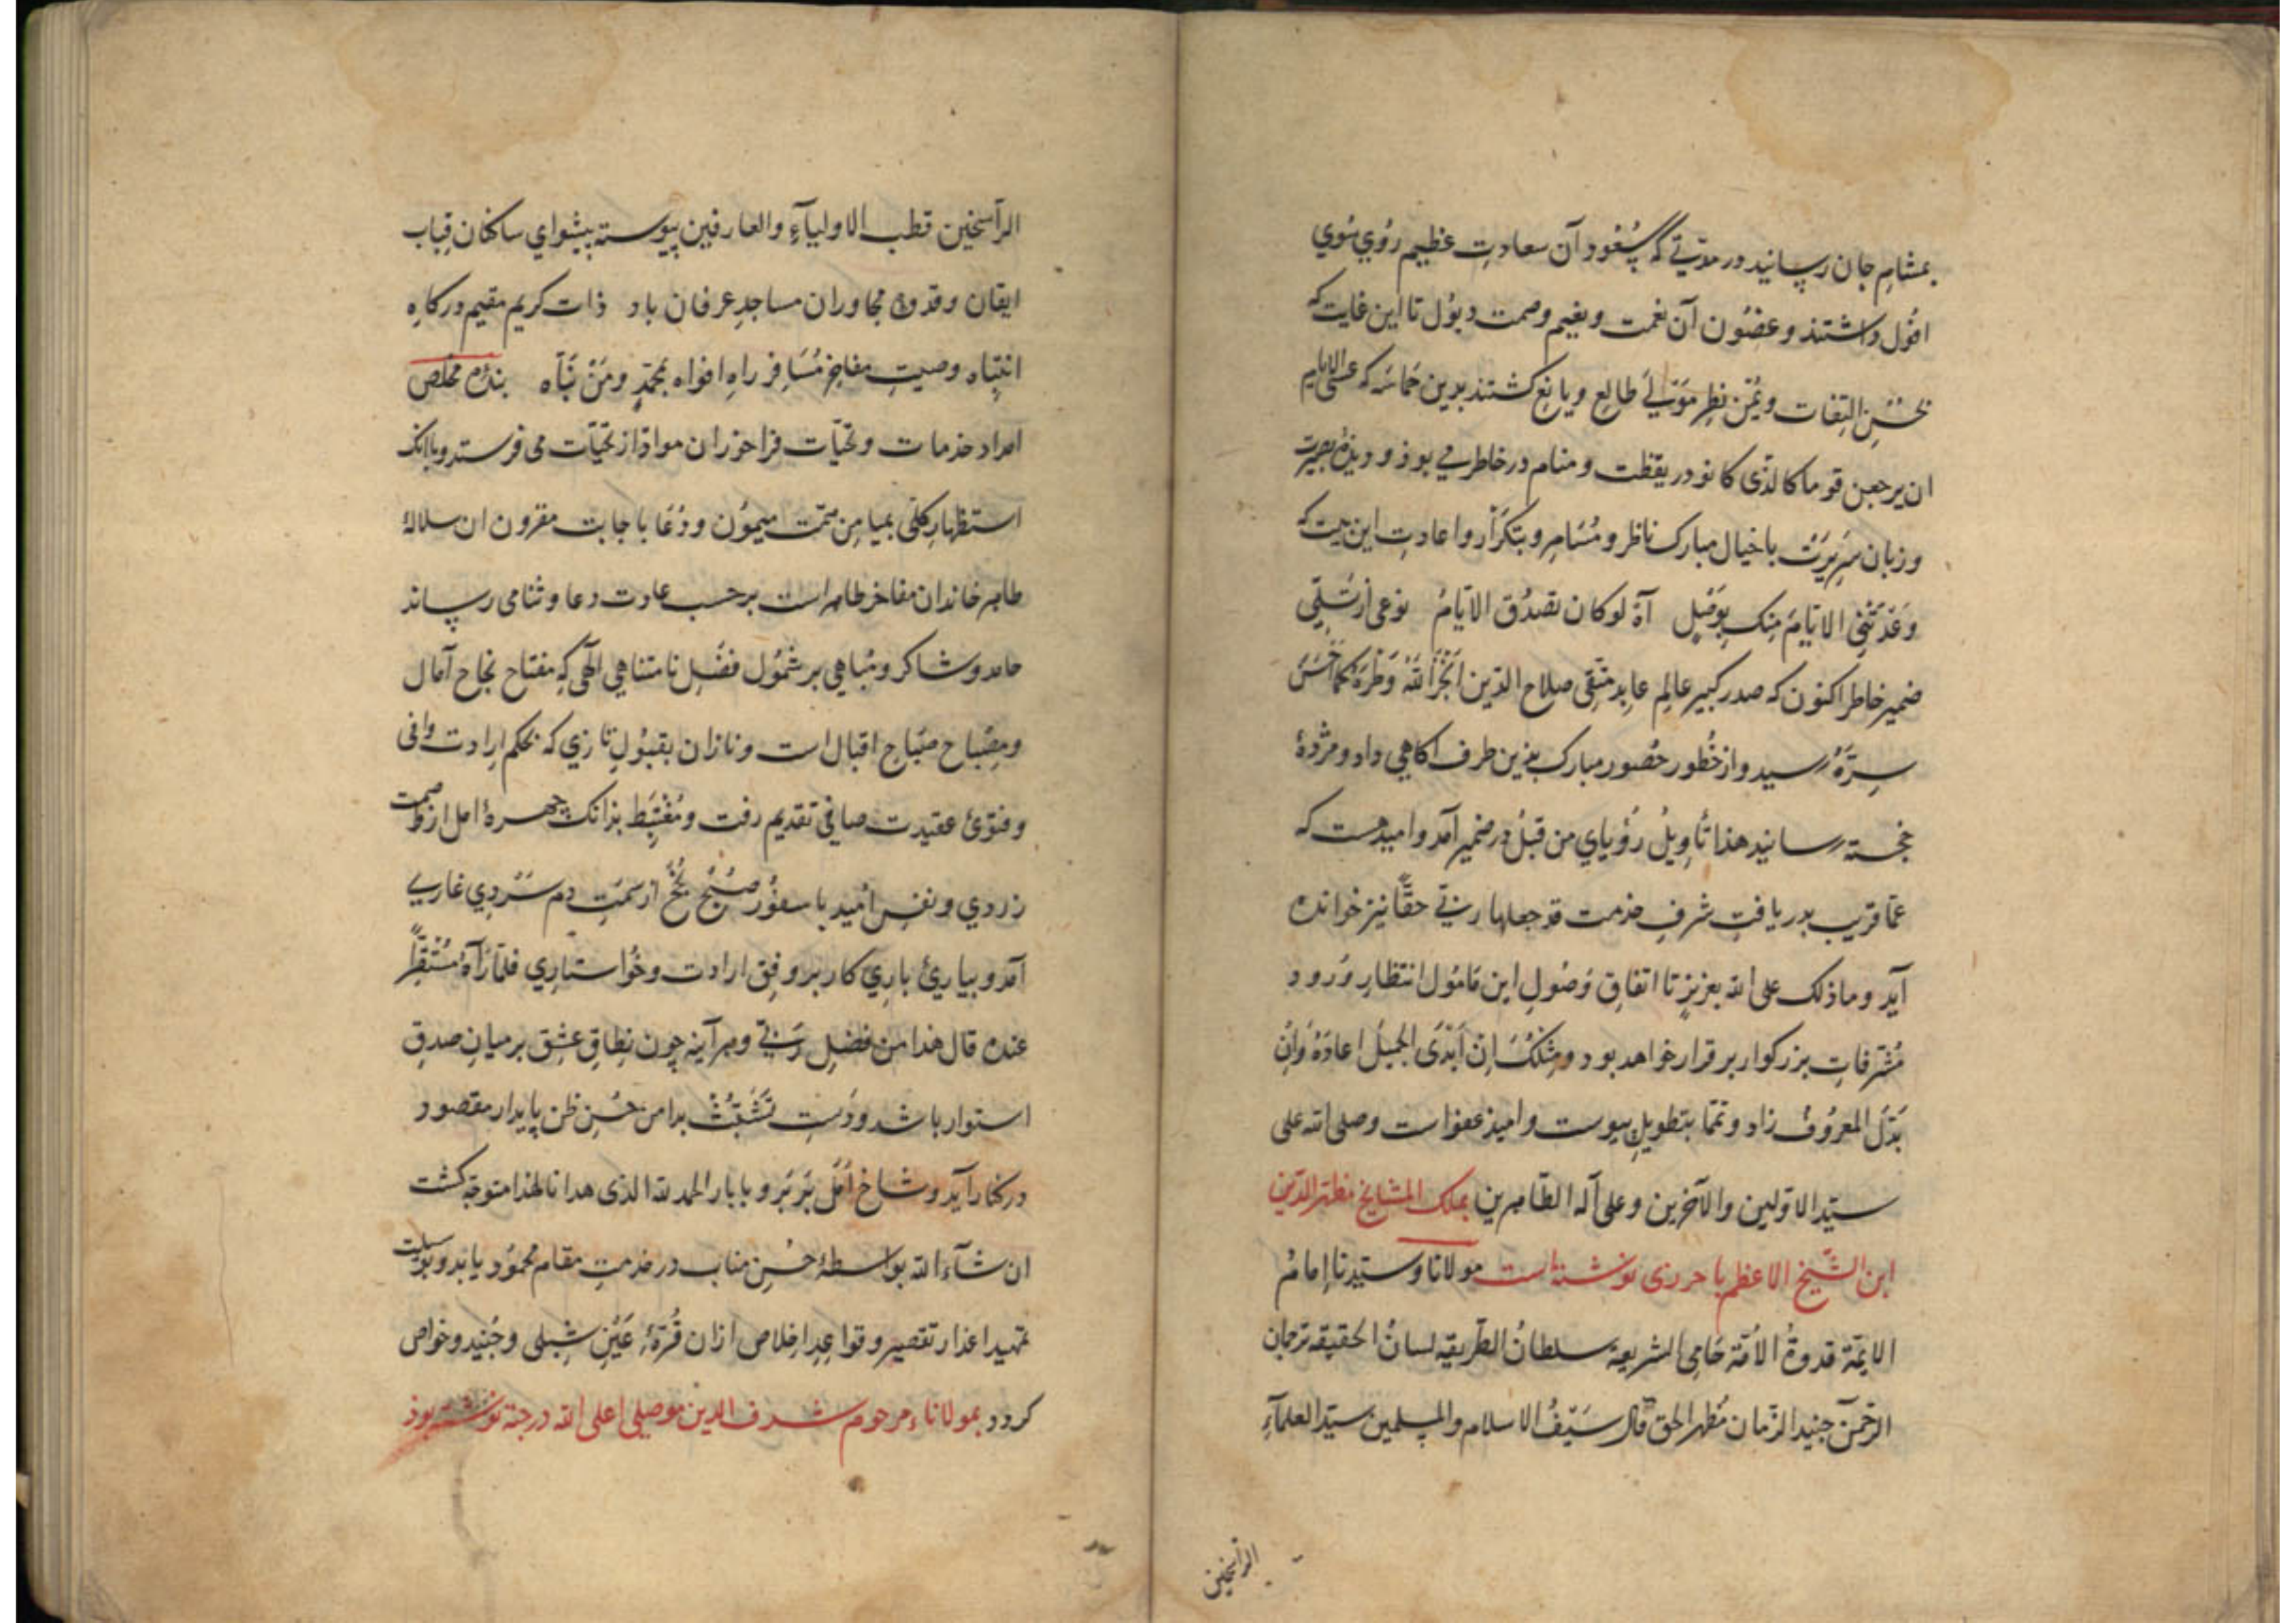 بمشام جان رسانید در مدتی که سعود آن سعادت عظیم روی سوی
افول داشتند و غصون آن نعمت و نعیم وصمت ذبول تا این غایت که
بحسن التفات و یمن نظر مولی طالع و یانع کشتند بدین حماسه که عسی الایام
ان یرجعن قوما کالذی کانو در یقظت و منام در خاطر می بود و دیدهٔ بصیرت
و زبان سریرت با خیال مبارک ناظر و مسامر و بتکرار و اعادت این بیت که
وعدتنی الایام منک بوصل آه لو کان تصدق الایام نوعی از تسلی
ضمیر خاطر اکنون که صدر کبیر عالم عابد متقی صلاح الدین انجز الله وطره کما احسن
سره رسید و از خطور حضور مبارک بدین طرف اکاهی داد و مژدهٔ
خجسته رسانید هذا تأویل رؤیای من قبل در ضمیر آمد و امید هست که
عما قریب بدریافت شرف خدمت قد جعلها ربی حقا نیز خوانده
آید و ما ذلک علی الله بعزیز تا اتفاق وصول این مامول انتظار ورود
مشرفات بزرکوار بر قرار خواهد بود و مثلک ان ابدی الجمیل اعاده وان
بذل المعروف زاد و تمما بتطویل پیوست و امید عفو است وصلی الله علی
سید الاولین والآخرین وعلی آله الطاهرین بملک المشایخ مظهر الدین
ابن الشیخ الاعظم باخرزی نوشته است مولانا وسیدنا امام
الایمة قدوة الامة حامی الشریعه سلطان الطریقه لسان الحقیقه ترجمان
الرحمن جنید الزمان مظهر الحق قال سیف الاسلام والمسلمین سید العلمآء
الراسخین
الراسخین قطب الاولیآء والعارفین پیوسته پیشوای ساکنان قباب
ایقان و قدوهٔ مجاوران مساجد عرفان باد ذات کریم مقیم درکاه
انتباه وصیت مفاخر مسافر راه افواه بمحمد ومن نباه بندهٔ مخلص
امداد خدمات و تحیات فراخور ان مواد از تحیات می فرستد و باانک
استظهار کلی بمیامن همت میمون و دعا باجابت مقرون ان سلالهٔ
طاهر خاندان مفاخر ظاهر است بر حسب عادت دعا و ثنا می رساند
حامد و شاکر و مباهی بر شمول فضل نامتناهی الهی که مفتاح نجاح آمال
و مصباح صباح اقبال است و نازان بقبول تازی که بحکم ارادت وافی
و فتوی عقیدت صافی تقدیم رفت و مغتبط بدانک چهرهٔ امل از وصمت
زردی و نفس امید با سفور صبح نجح از سمت دم سردی عاری
آمد و بیاریٔ باری کار بر وفق ارادت و خواستاری فلما رآه مستقرا
عنده قال هذا من فضل ربی و هرآینه چون نطاق عشق بر میان صدق
استوار باشد و دست تشبث بدامن حسن ظن پایدار مقصود
در کنار آید و شاخ امل بر بر و بابار الحمد لله الذی هدانا لهذا متوجه کشت
ان شآء الله بواسطهٔ حسن مناب در خدمت مقام محمود یابد و بوسیلت
تمهید اعذار تقصیر و قواعد اخلاص ازان قرهٔ عین شبلی و جنید و خواص
کردد بمولاناء مرحوم شرف الدین موصلی اعلی الله درجته نوشته بود